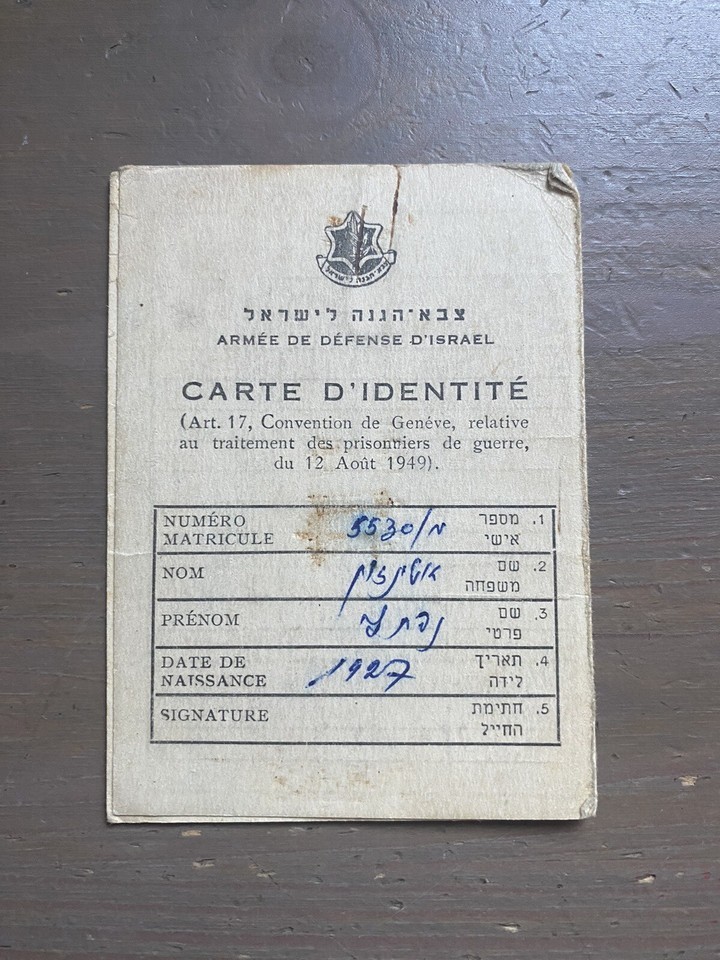 צבא·הגנה לישראל
צבא·הגנה לישראל
ARMÉE DE DÉFENSE D'ISRAEL
CARTE D'IDENTITÉ
(Art. 17, Convention de Genéve, relative
au traitement des prisonniers de guerre,
du 12 Août 1949).
NUMÉRO MATRICULE 5530/מ 1. מספר אישי
NOM 2. שם משפחה
PRÉNOM 3. שם פרטי
DATE DE NAISSANCE 1927 4. תאריך לידה
SIGNATURE 5. חתימת החייל